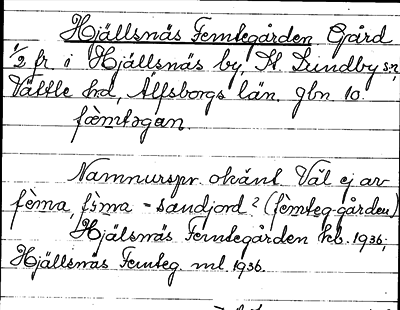 Hjällsnäs Femtegården Gård
1/2 fr. i Hjällsnäs by, St. Lundby sn,
Vättle hd, Älfsborgs län. gbn 10.
fæmtəgan.
Namnurspr. okänt. Väl ej av
fèma, fìma - sandjord? (fèmteg-gården)
Hjälsnäs Femtegården kb. 1936;
Hjällsnäs Femteg. ml. 1936.